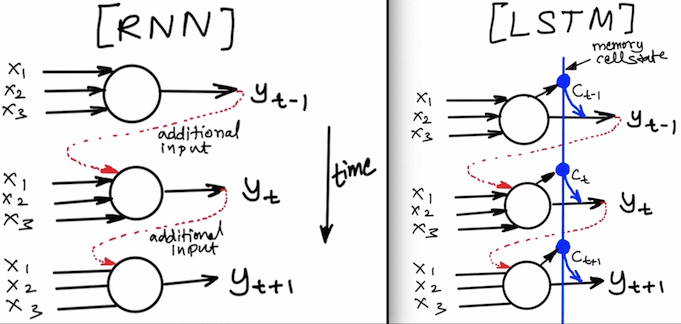 [RNN]
x1
x2
x3
yt-1
additional
input
x1
x2
x3
yt
time
additional
input
x1
x2
x3
yt+1
[LSTM]
memory
cellstate
x1
x2
x3
Ct-1
yt-1
x1
x2
x3
Ct
yt
x1
x2
x3
Ct+1
yt+1